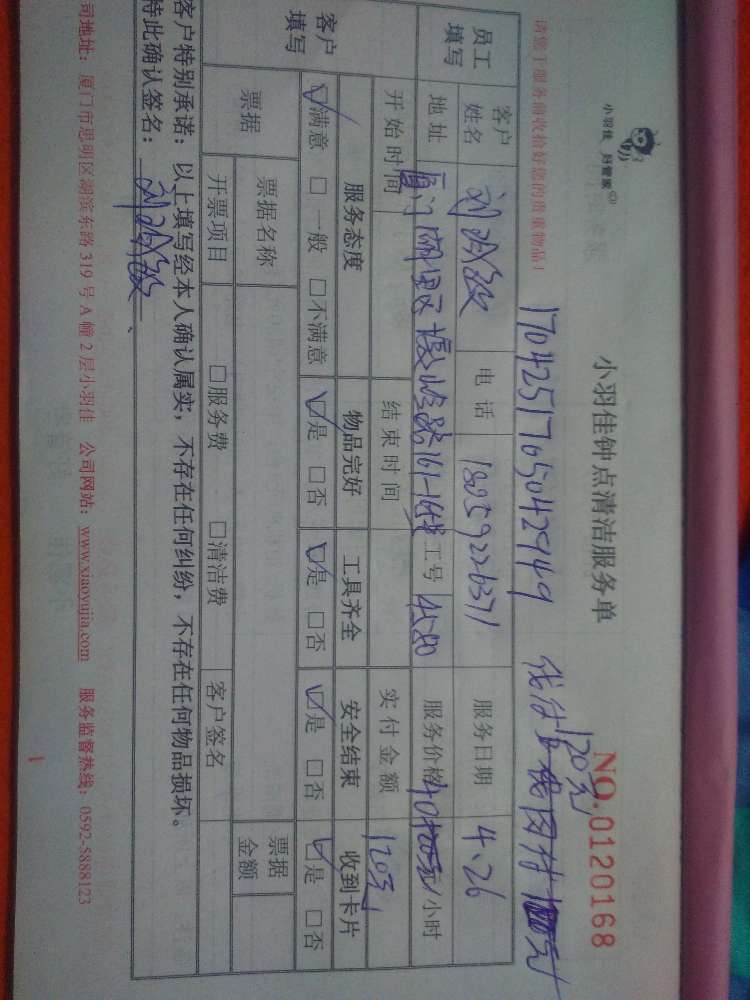 小羽佳 好管家
请您于服务前收拾好您的贵重物品！
小羽佳钟点清洁服务单
NO.0120168
1704251705042949
120元
员工填写
客户姓名
电话 18059226371
服务日期 4.26
地址 厦门
161-1
工号 4580
服务价格 40 元/小时
开始时间
结束时间
实付金额 120元
客户填写
服务态度 物品完好 工具齐全 安全结束 收到卡片
☑满意 □一般 □不满意 ☑是 □否 ☑是 □否 ☑是 □否 ☑是 □否
票据
票据名称
票据金额
开票项目 □服务费 □清洁费 客户签名
客户特别承诺：以上填写经本人确认属实，不存在任何纠纷，不存在任何物品损坏。
特此确认签名：
司地址：厦门市思明区湖滨东路319号A幢2层小羽佳 公司网站：www.xiaoyujia.com 服务监督热线：0592-5888123